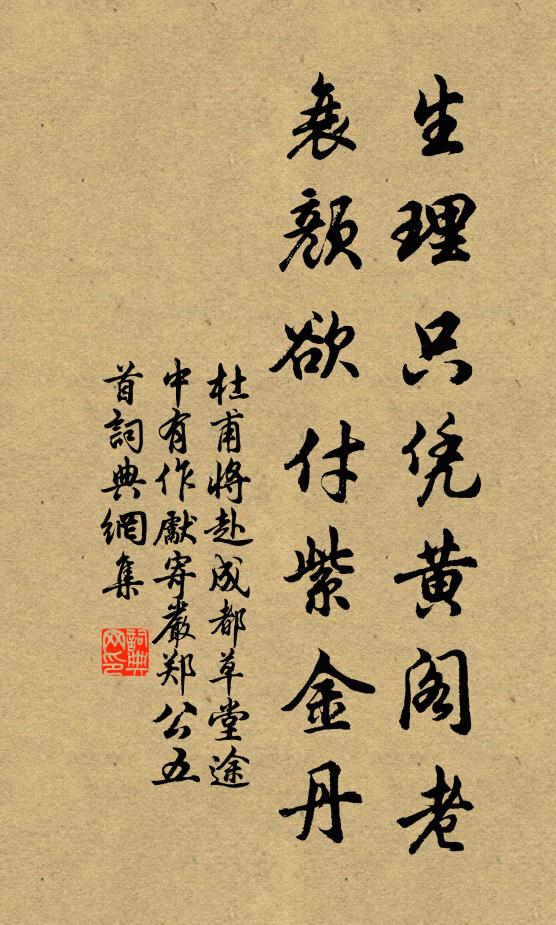 生理只凭黄阁老
衰颜欲付紫金丹
杜甫將赴成都草堂途
中有作獻寄嚴郑公五
首詞典網集
詞典网印